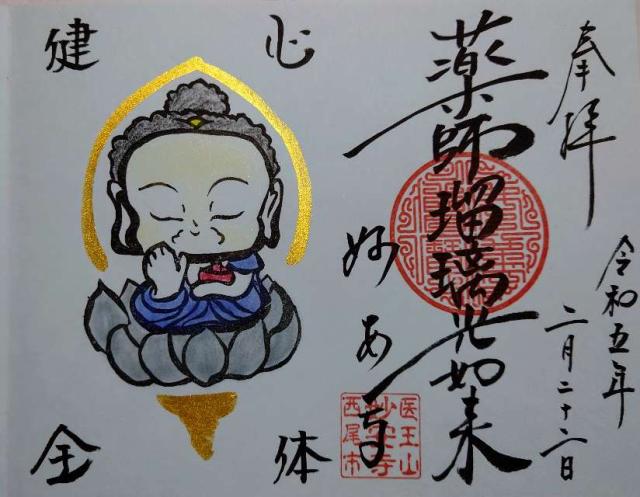 奉拝
令和五年
二月二十二日
薬師瑠璃光如来
妙安寺
医王山
妙安寺
西尾市
心
体
健
全